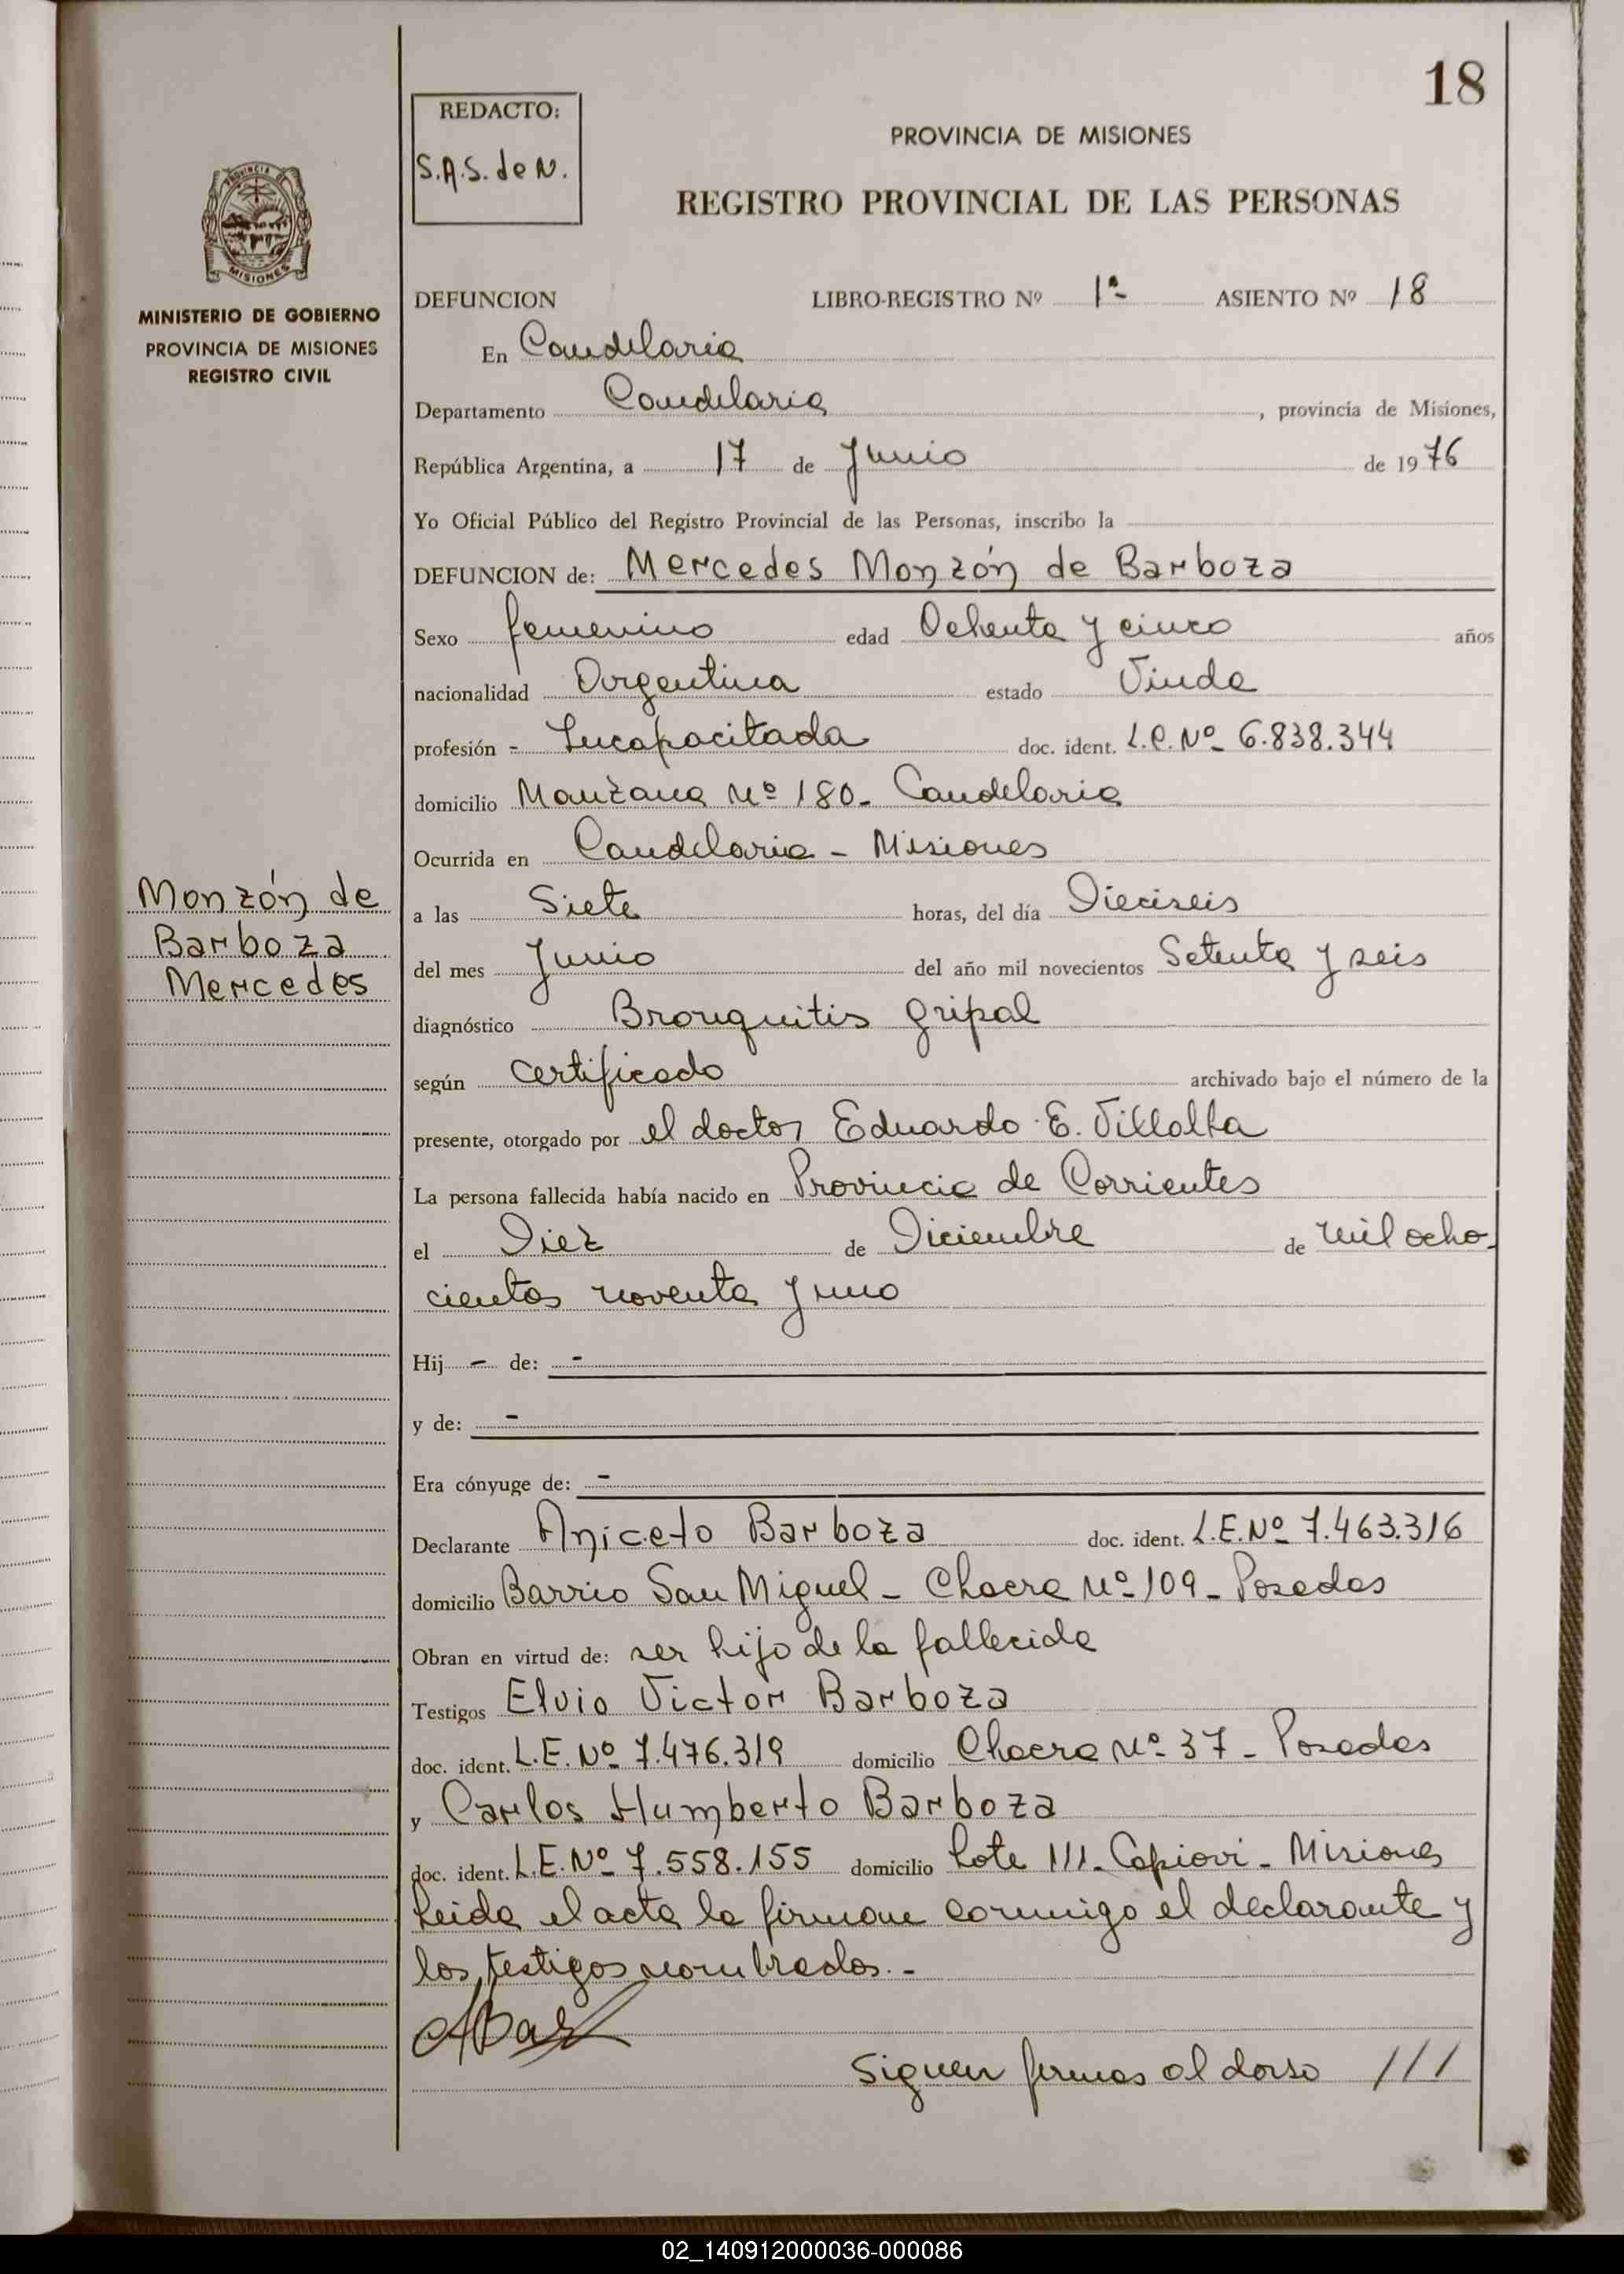 18
REDACTO:
S.A.S. de N.
PROVINCIA DE MISIONES
REGISTRO PROVINCIAL DE LAS PERSONAS
PROVINCIA DE
MISIONES
MINISTERIO DE GOBIERNO
PROVINCIA DE MISIONES
REGISTRO CIVIL
DEFUNCION LIBRO-REGISTRO Nº 1º- ASIENTO Nº 18
En Candelaria
Departamento Candelaria, provincia de Misiones,
República Argentina, a 17 de Junio de 1976
Yo Oficial Público del Registro Provincial de las Personas, inscribo la
DEFUNCION de: Mercedes Monzón de Barboza
Sexo femenino edad Ochenta y cinco años
nacionalidad Argentina estado Viuda
profesión - Incapacitada doc. ident. L.C. Nº 6.838.344
domicilio Manzana Nº 180- Candelaria
Ocurrida en Candelaria - Misiones
a las Siete horas, del día Dieciseis
del mes Junio del año mil novecientos Setenta y seis
diagnóstico Bronquitis gripal
según certificado archivado bajo el número de la
presente, otorgado por el doctor Eduardo E. Villalba
La persona fallecida había nacido en Provincia de Corrientes
el Diez de Diciembre de mil ocho-
cientos noventa y uno
Hij - de: -
y de: -
Era cónyuge de: -
Declarante Aniceto Barboza doc. ident. L.E. Nº 7.463.316
domicilio Barrio San Miguel - Chacra Nº 109 - Posadas
Obran en virtud de: ser hijo de la fallecida
Testigos Elvio Victor Barboza
doc. ident. L.E. Nº 7.476.319 domicilio Chacra Nº 37 - Posadas
y Carlos Humberto Barboza
doc. ident. L.E. Nº 7.558.155 domicilio Lote 111- Capiovi - Misiones
Leida el acta la firman conmigo el declarante y
los testigos nombrados.-
Siguen firmas al dorso ///
Monzón de
Barboza
Mercedes
02_140912000036-000086